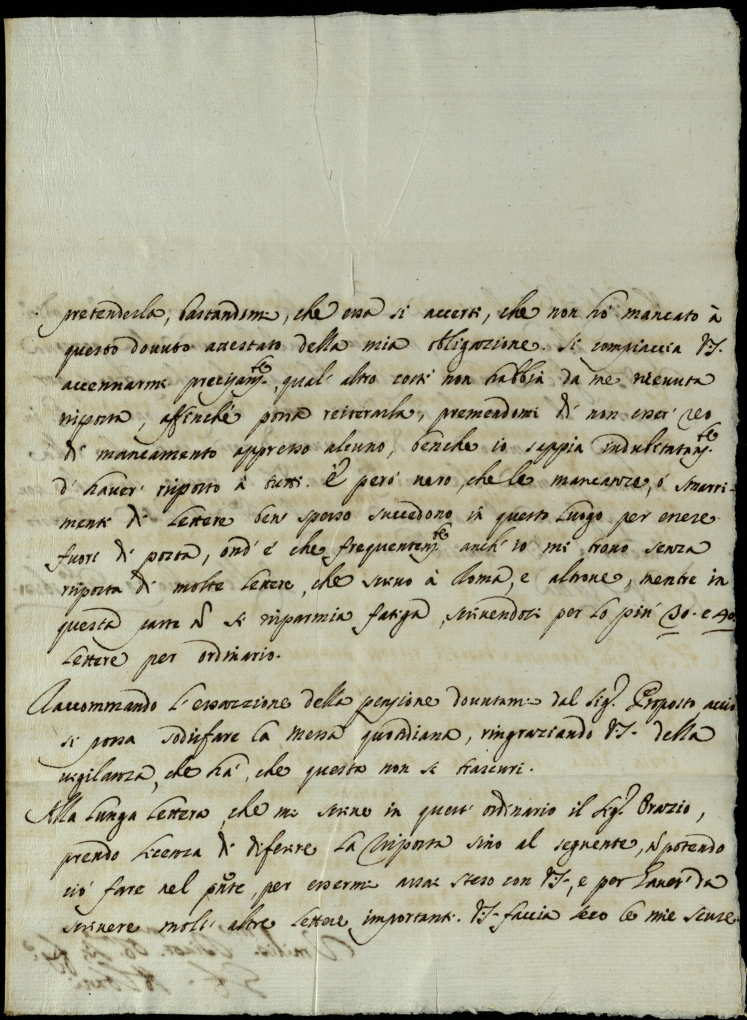 pretenderla, bastandomi, che essa si accerti, che non hò mancato à
questo dovuto attestato della mia obligazione. Si compiaccia VS.
accennarmi precisam.te, qual' altro costì non habbia da me ricevuta
risposta, affinche possa reiterarla, premendomi di non esser' reo
di mancamento appresso alcuno, benche io sappia indubitatam.te
d' haver' risposto à tutti. È però vero, che le mancanze, ò smarri-
menti di Lettere ben' spesso succedono in questo Luogo per essere
fuori di posta, ond' è che frequentem.te anch' io mi trovo senza
risposta di molte Lettere, che scrivo à Roma, e altrove, mentre in
questa parte nõ si risparmia fatiga, scrivendosi per lo più 30. e 40.
Lettere per ordinario.
Raccommando l' essazzione della pensione dovutami dal Sig.r Proposto acciò
si possa sodisfare la messa quotidiana, ringraziando VS. della
vigilanza, che hà, che questa non si trascuri.
Alla lunga Lettera, che mi scrive in quest' ordinario il Sig.r Orazio,
prendo licenza di diferire la risposta sino al seguente, nõ potendo
ciò fare nel pñte, per essermi assai steso con VS., e per haver' da
scrivere molt' altre Lettere important. VS. faccia seco le mie scuse